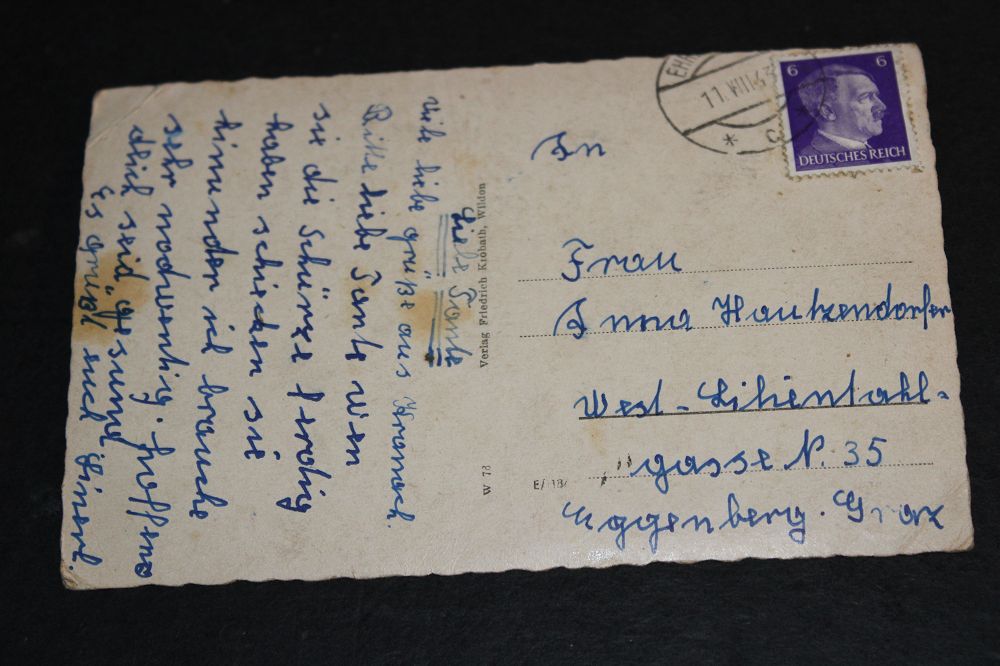 Liebe Tante
Viele liebe grüße aus Kranach.
Bitte liebe Tante wen
sie die Schürze ferdig
haben schicken sie
hinunder ich brauche
sehr nodwentig. hoffend
dhich seid gesund
Es grüßt euch
Verlag Friedrich Krobath, Wildon
W 73
11. VIII 43
* C
6 6
DEUTSCHES REICH
An
Frau
Anna Hautzendorfer
West-Lilientahl-
gasse N. 35
Eggenberg. Graz